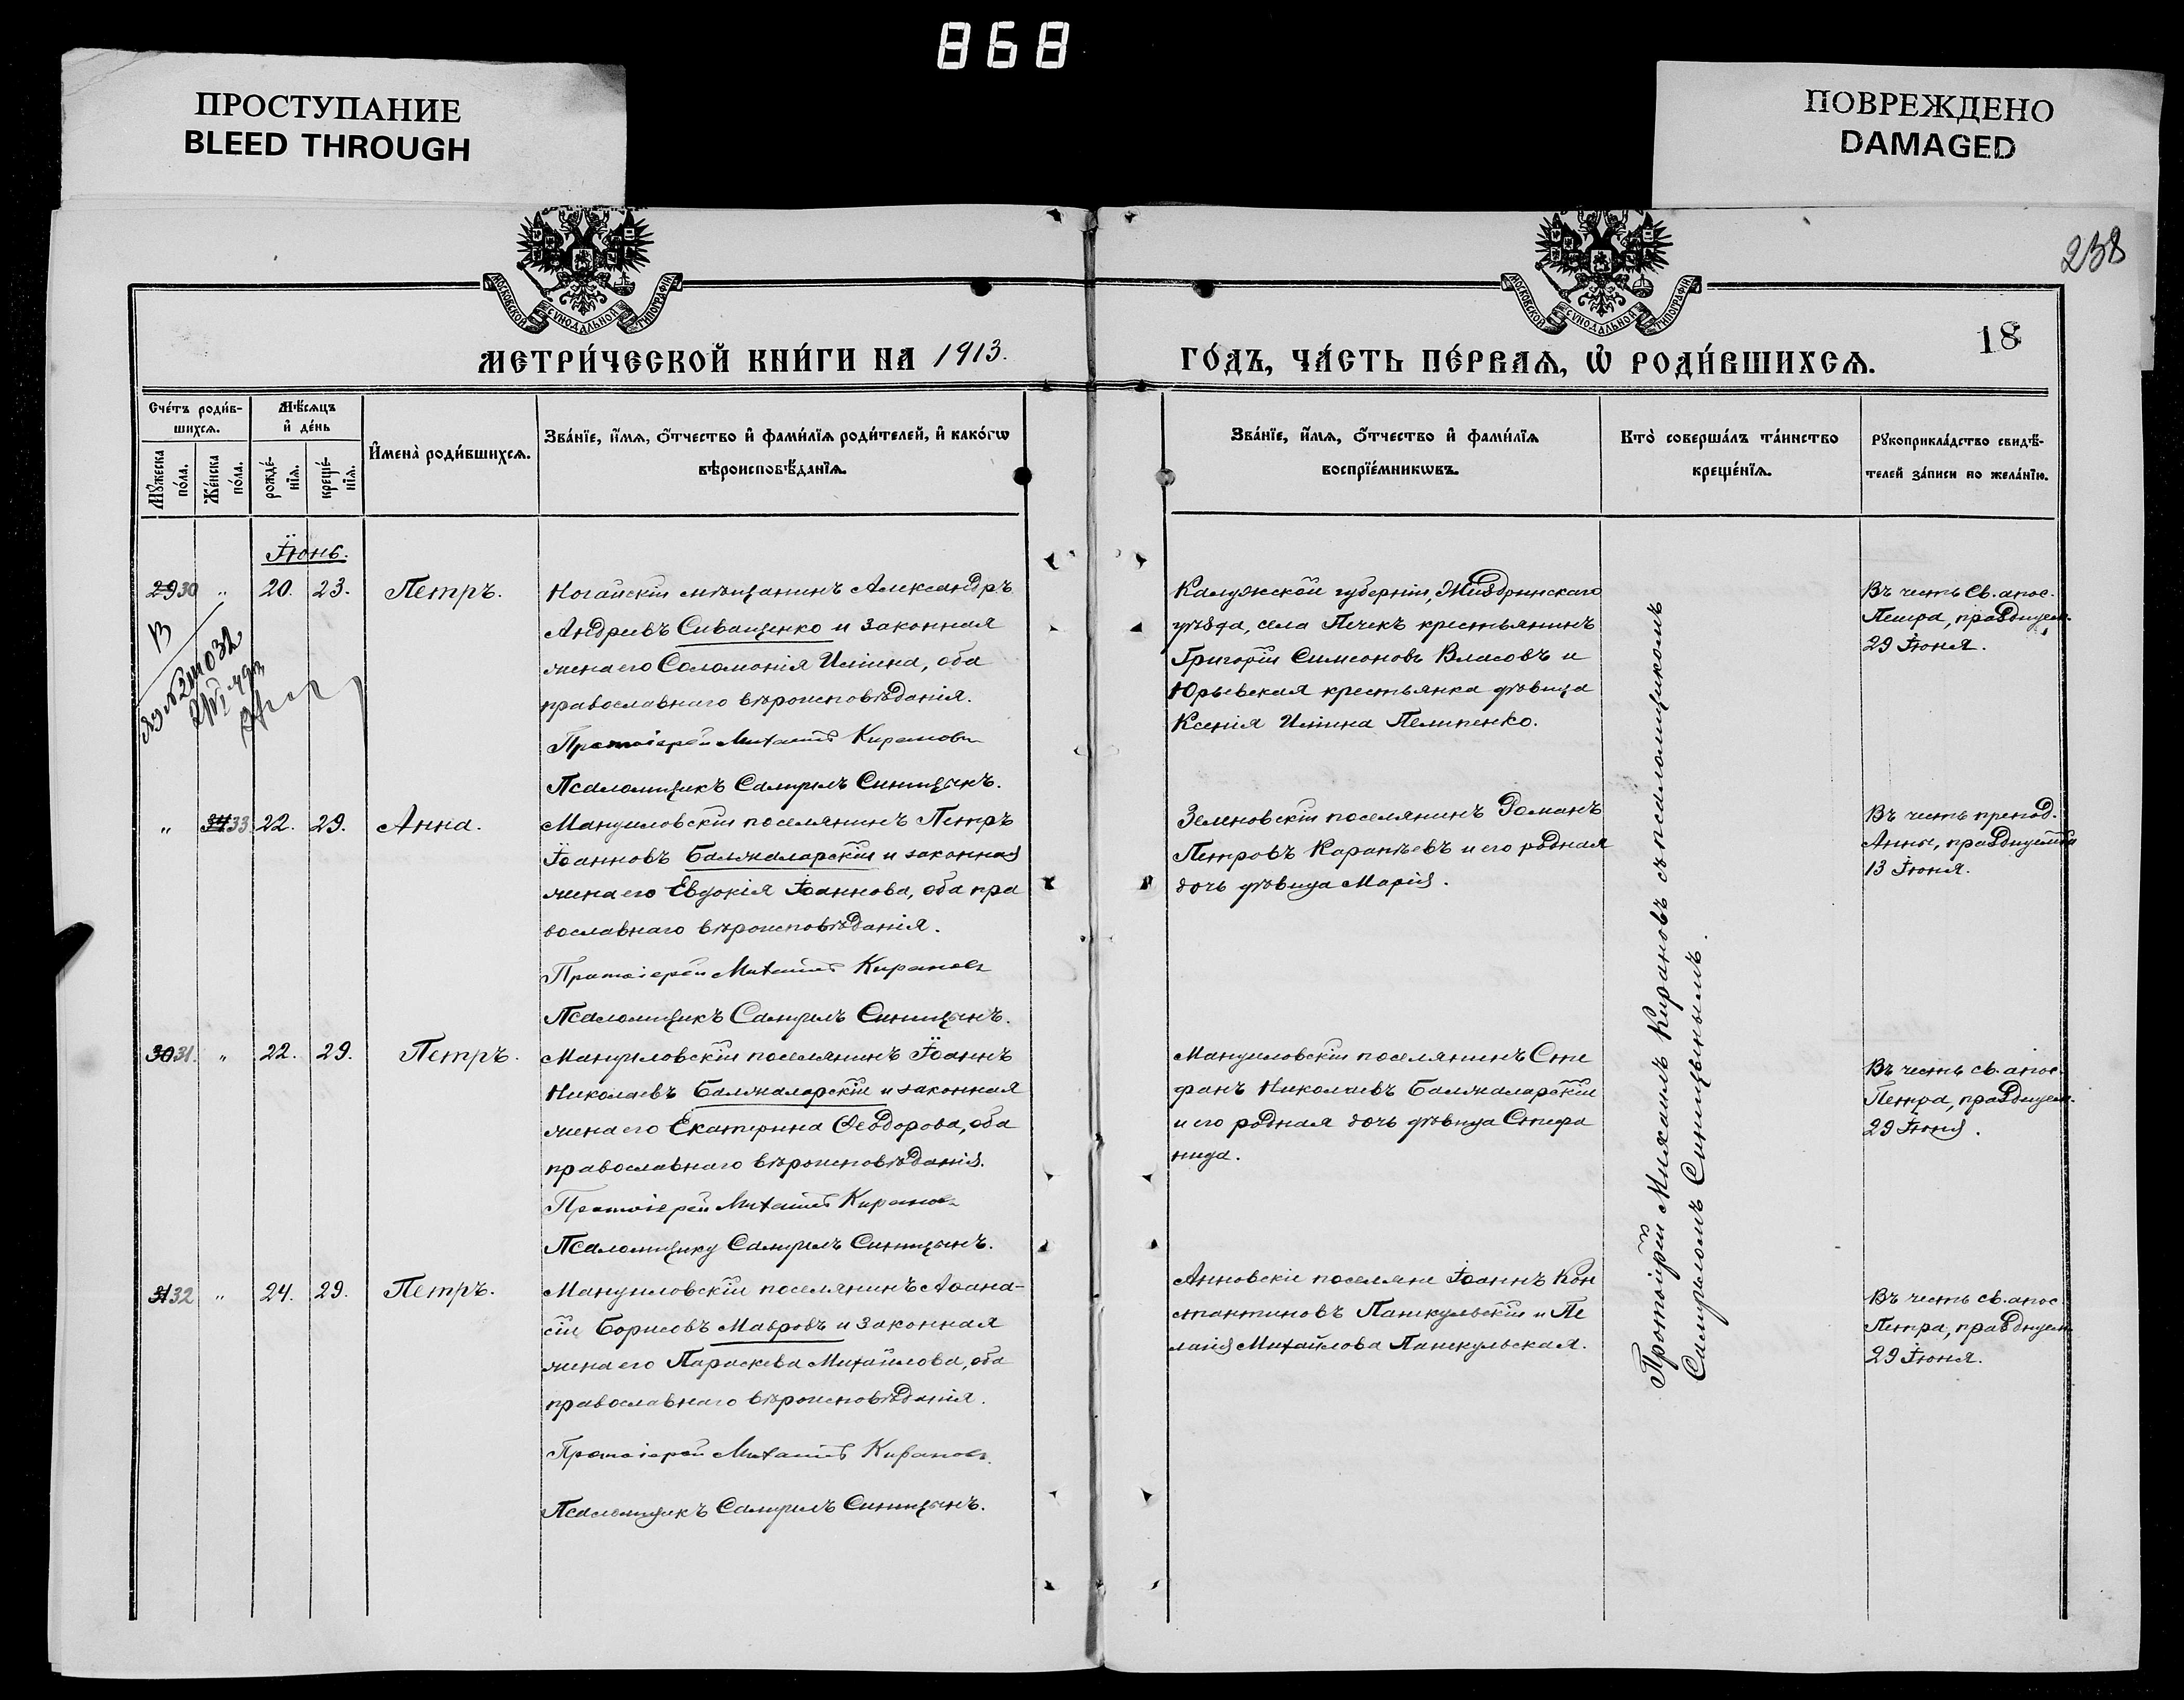 868
ПРОСТУПАНИЕ
BLEED THROUGH
ПОВРЕЖДЕНО
DAMAGED
МОСКОВСКОЙ СѴНОДАЛЬНОЙ ТИПОГРАФІИ
МОСКОВСКОЙ СѴНОДАЛЬНОЙ ТИПОГРАФІИ
238
18
МЕТРИ́ЧЕСКОЙ КНИ́ГИ НА 1913.
ГО́ДЪ, ЧА́СТЬ ПЕ́РВАѦ, Ѡ҆ РОДИ́ВШИХСѦ.
Сче́тъ роди́в-
шихсѧ.
Мꙋ́жеска по́ла.
Же́нска по́ла.
Мѣ́сѧцъ
и҆ де́нь
рожде́-
нїѧ.
креще́-
нїѧ.
И҆мена̀ роди́вшихсѧ.
Зва́нїе, и҆́мѧ, ѻ҆́тчество и҆ фами́лїѧ роди́телей, и҆ како́гѡ
вѣроисповѣ́данїѧ.
Зва́нїе, и҆́мѧ, ѻ҆́тчество и҆ фами́лїѧ
воспрїе́мникѡвъ.
Кто̀ соверша́лъ та́инство
креще́нїѧ.
Рꙋкоприкла́дство свидѣ́-
телей за́писи по жела́нїю.
Іюнь.
29 30 " 20. 23. Петръ.
Ногайскій мѣщанинъ Александръ
Андреевъ Сиващенко и законная
жена его Соломонія Иліина, оба
православнаго вѣроисповѣданія.
Протоіерей Михаилъ Кирановъ
Псаломщикъ Самуилъ Синицынъ.
Калужской губерніи, Жиздринскаго
уѣзда, села Печекъ крестьянинъ
Григорій Симеоновъ Власовъ и
Юрьевская крестьянка дѣвица
Ксенія Иліина Пелипенко.
Въ честь Св. апос.
Петра, празднуем.
29 Іюня.
" 34 33. 22. 29. Анна.
Мануиловскій поселянинъ Петръ
Іоанновъ Балжаларскій и законная
жена его Евдокія Іоаннова, оба пра
вославнаго вѣроисповѣданія.
Протоіерей Михаилъ Кирановъ
Псаломщикъ Самуилъ Синицынъ.
Зеленовскій поселянинъ Романъ
Петровъ Карапѣевъ и его родная
дочь дѣвица Марія.
Въ честь препод.
Анны, празднуемой
13 Іюня.
30 31. " 22. 29. Петръ.
Мануиловскій поселянинъ Іоаннъ
Николаевъ Балжаларскій и законная
жена его Екатерина Ѳеодорова, оба
православнаго вѣроисповѣданія.
Протоіерей Михаилъ Кирановъ
Псаломщику Самуилъ Синицынъ.
Мануиловскій поселянинъ Сте
фанъ Николаевъ Балжаларскій
и его родная дочь дѣвица Стефа
нида.
Въ честь св. апос.
Петра, празднуем.
29 Іюня.
31 32 " 24. 29. Петръ.
Мануиловскій поселянинъ Аѳана-
сій Борисовъ Мавровъ и законная
жена его Параскева Михайлова, оба
православнаго вѣроисповѣданія.
Протоіерей Михаилъ Кирановъ
Псаломщикъ Самуилъ Синицынъ.
Анновскіе поселяне Іоаннъ Кон
стантиновъ Пашкульскій и Пе
лагія Михайлова Пашкульская.
Въ честь св. апос
Петра, празднуем
29 Іюня.
Протоіерей Михаилъ Кирановъ съ псаломщикомъ
Самуиломъ Синицынымъ.